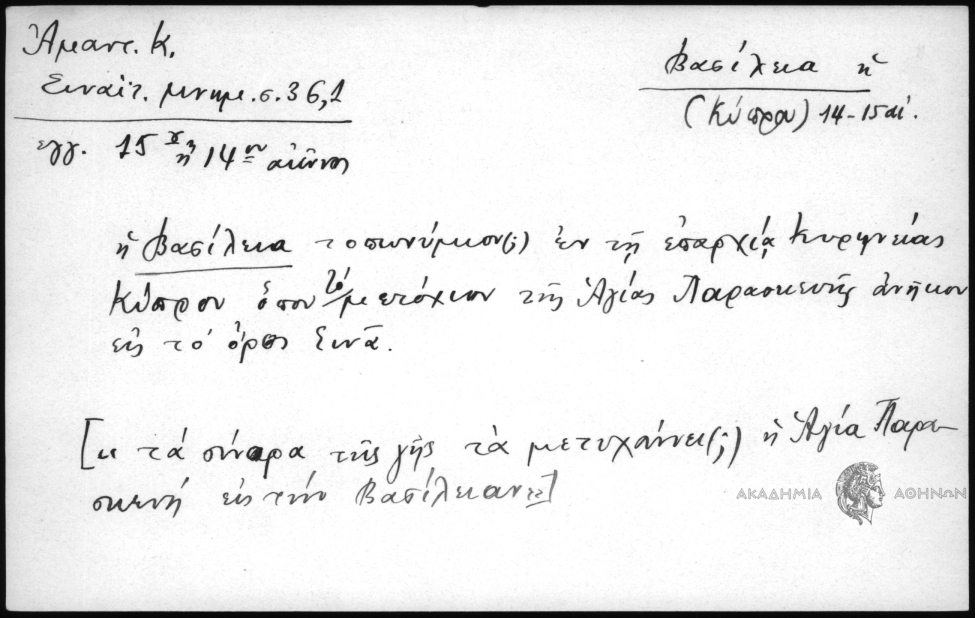 Ἀμαντ. Κ.
Σιναϊτ. μνημ. σ. 36,1
ἐγγ. 15 ἢ 14ου αἰῶνος
Βασίλεια ἡ
(Κύπρου) 14-15 αἰ.
ἡ Βασίλεια τοπωνύμιον(;) ἐν τῇ ἐπαρχίᾳ Κυρηνείας
Κύπρου ὅπου τό μετόχιον τῆς Ἁγίας Παρασκευῆς ἀνῆκον
εἰς τό ὄρος Σινᾶ.
[« τά σύνορα τῆς γῆς τά μετυχαίνει(;) ἡ Ἁγία Παρα-
σκευή εἰς τήν Βασίλειαν »]
ΑΚΑΔΗΜΙΑ ΑΘΗΝΩΝ